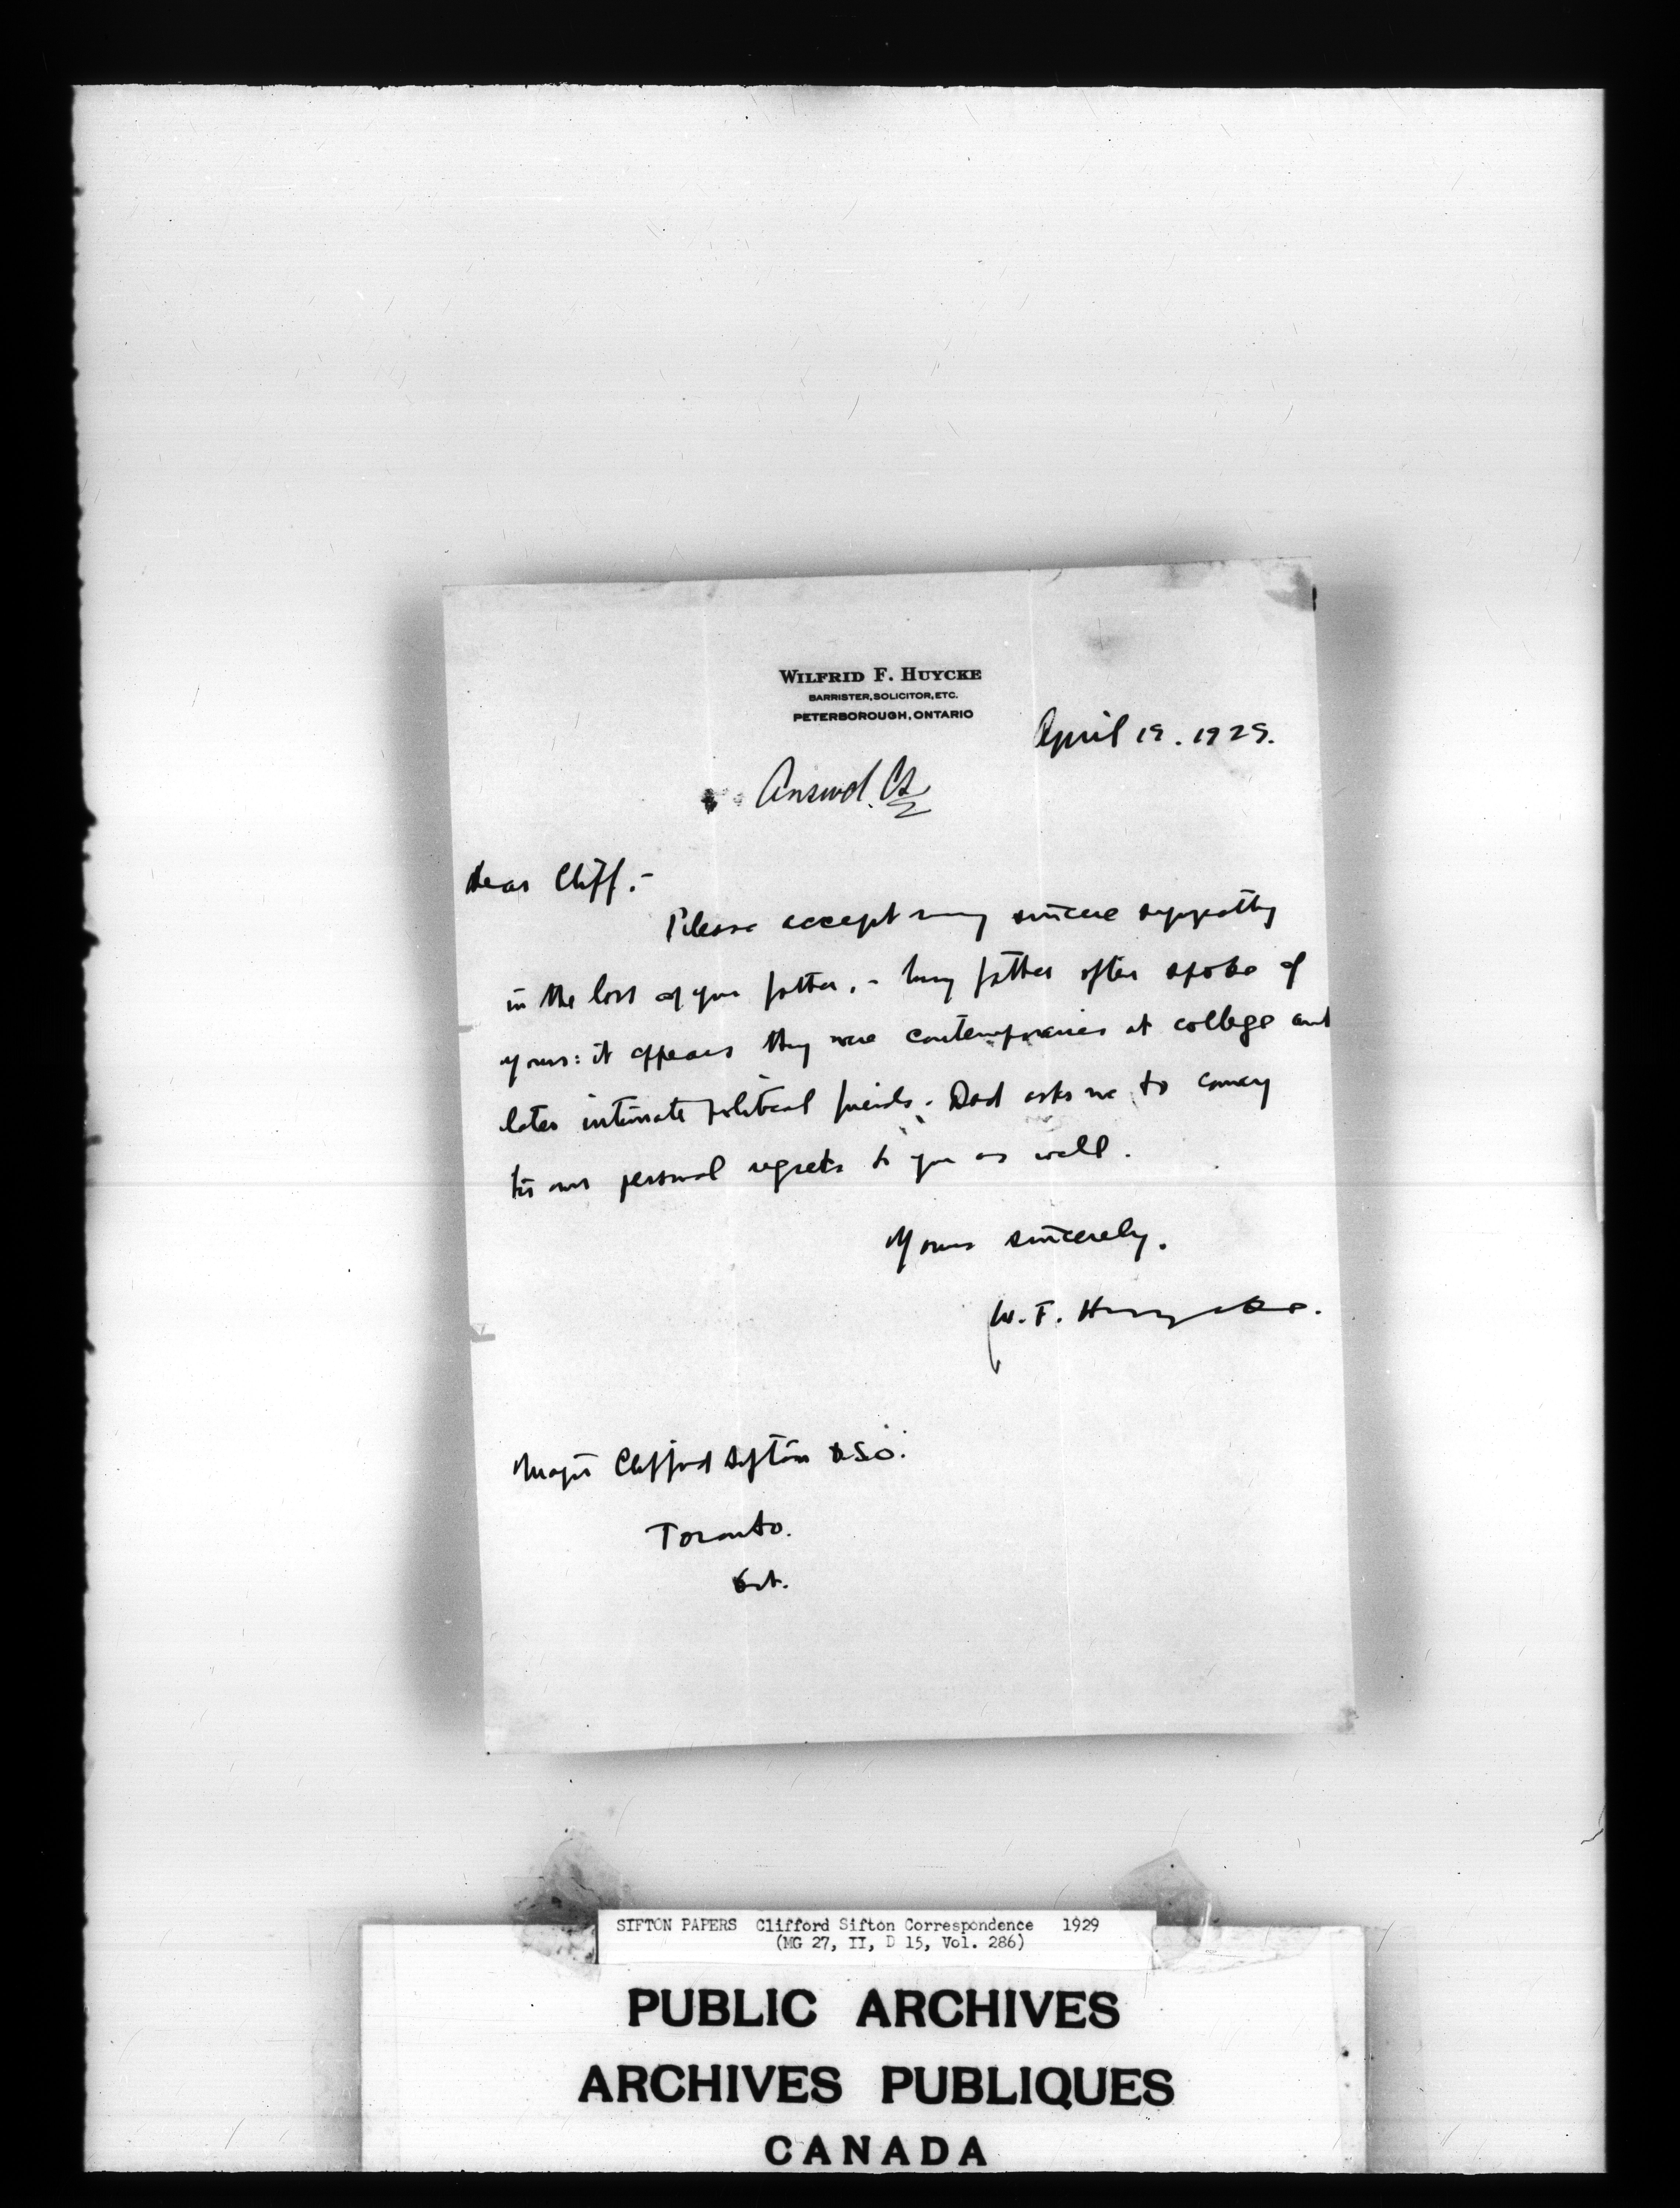 WILFRID F. HUYCKE
BARRISTER, SOLICITOR, ETC.
PETERBOROUGH, ONTARIO
April 19. 1929.
Answd. CS
Dear Cliff.-
Please accept my sincere sympathy
in the loss of your father. - My father often spoke of
yours: it appears they were contemporaries at college and
later intimate political friends. Dad asks me to convey
his own personal regrets to you as well.
Yours sincerely.
W. F. Huycke.
Major Clifford Sifton DSO.
Toronto.
Ont.
SIFTON PAPERS Clifford Sifton Correspondence 1929
(MG 27, II, D 15, Vol. 286)
PUBLIC ARCHIVES
ARCHIVES PUBLIQUES
CANADA